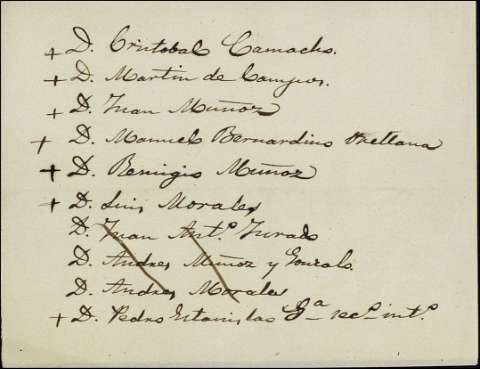 + D. Cristobal Camacho.
+ D. Martin de Campos.
+ D. Juan Muñoz
+ D. Manuel Bernardino Orellana
+ D. Remigio Muñoz
+ D. Luis Morales
D. Juan Ant.º Jurado
D. Andres Muñoz y Gonzalo.
D. Andres Morales
+ D. Pedro Estanislao G.ª sec.º int.º